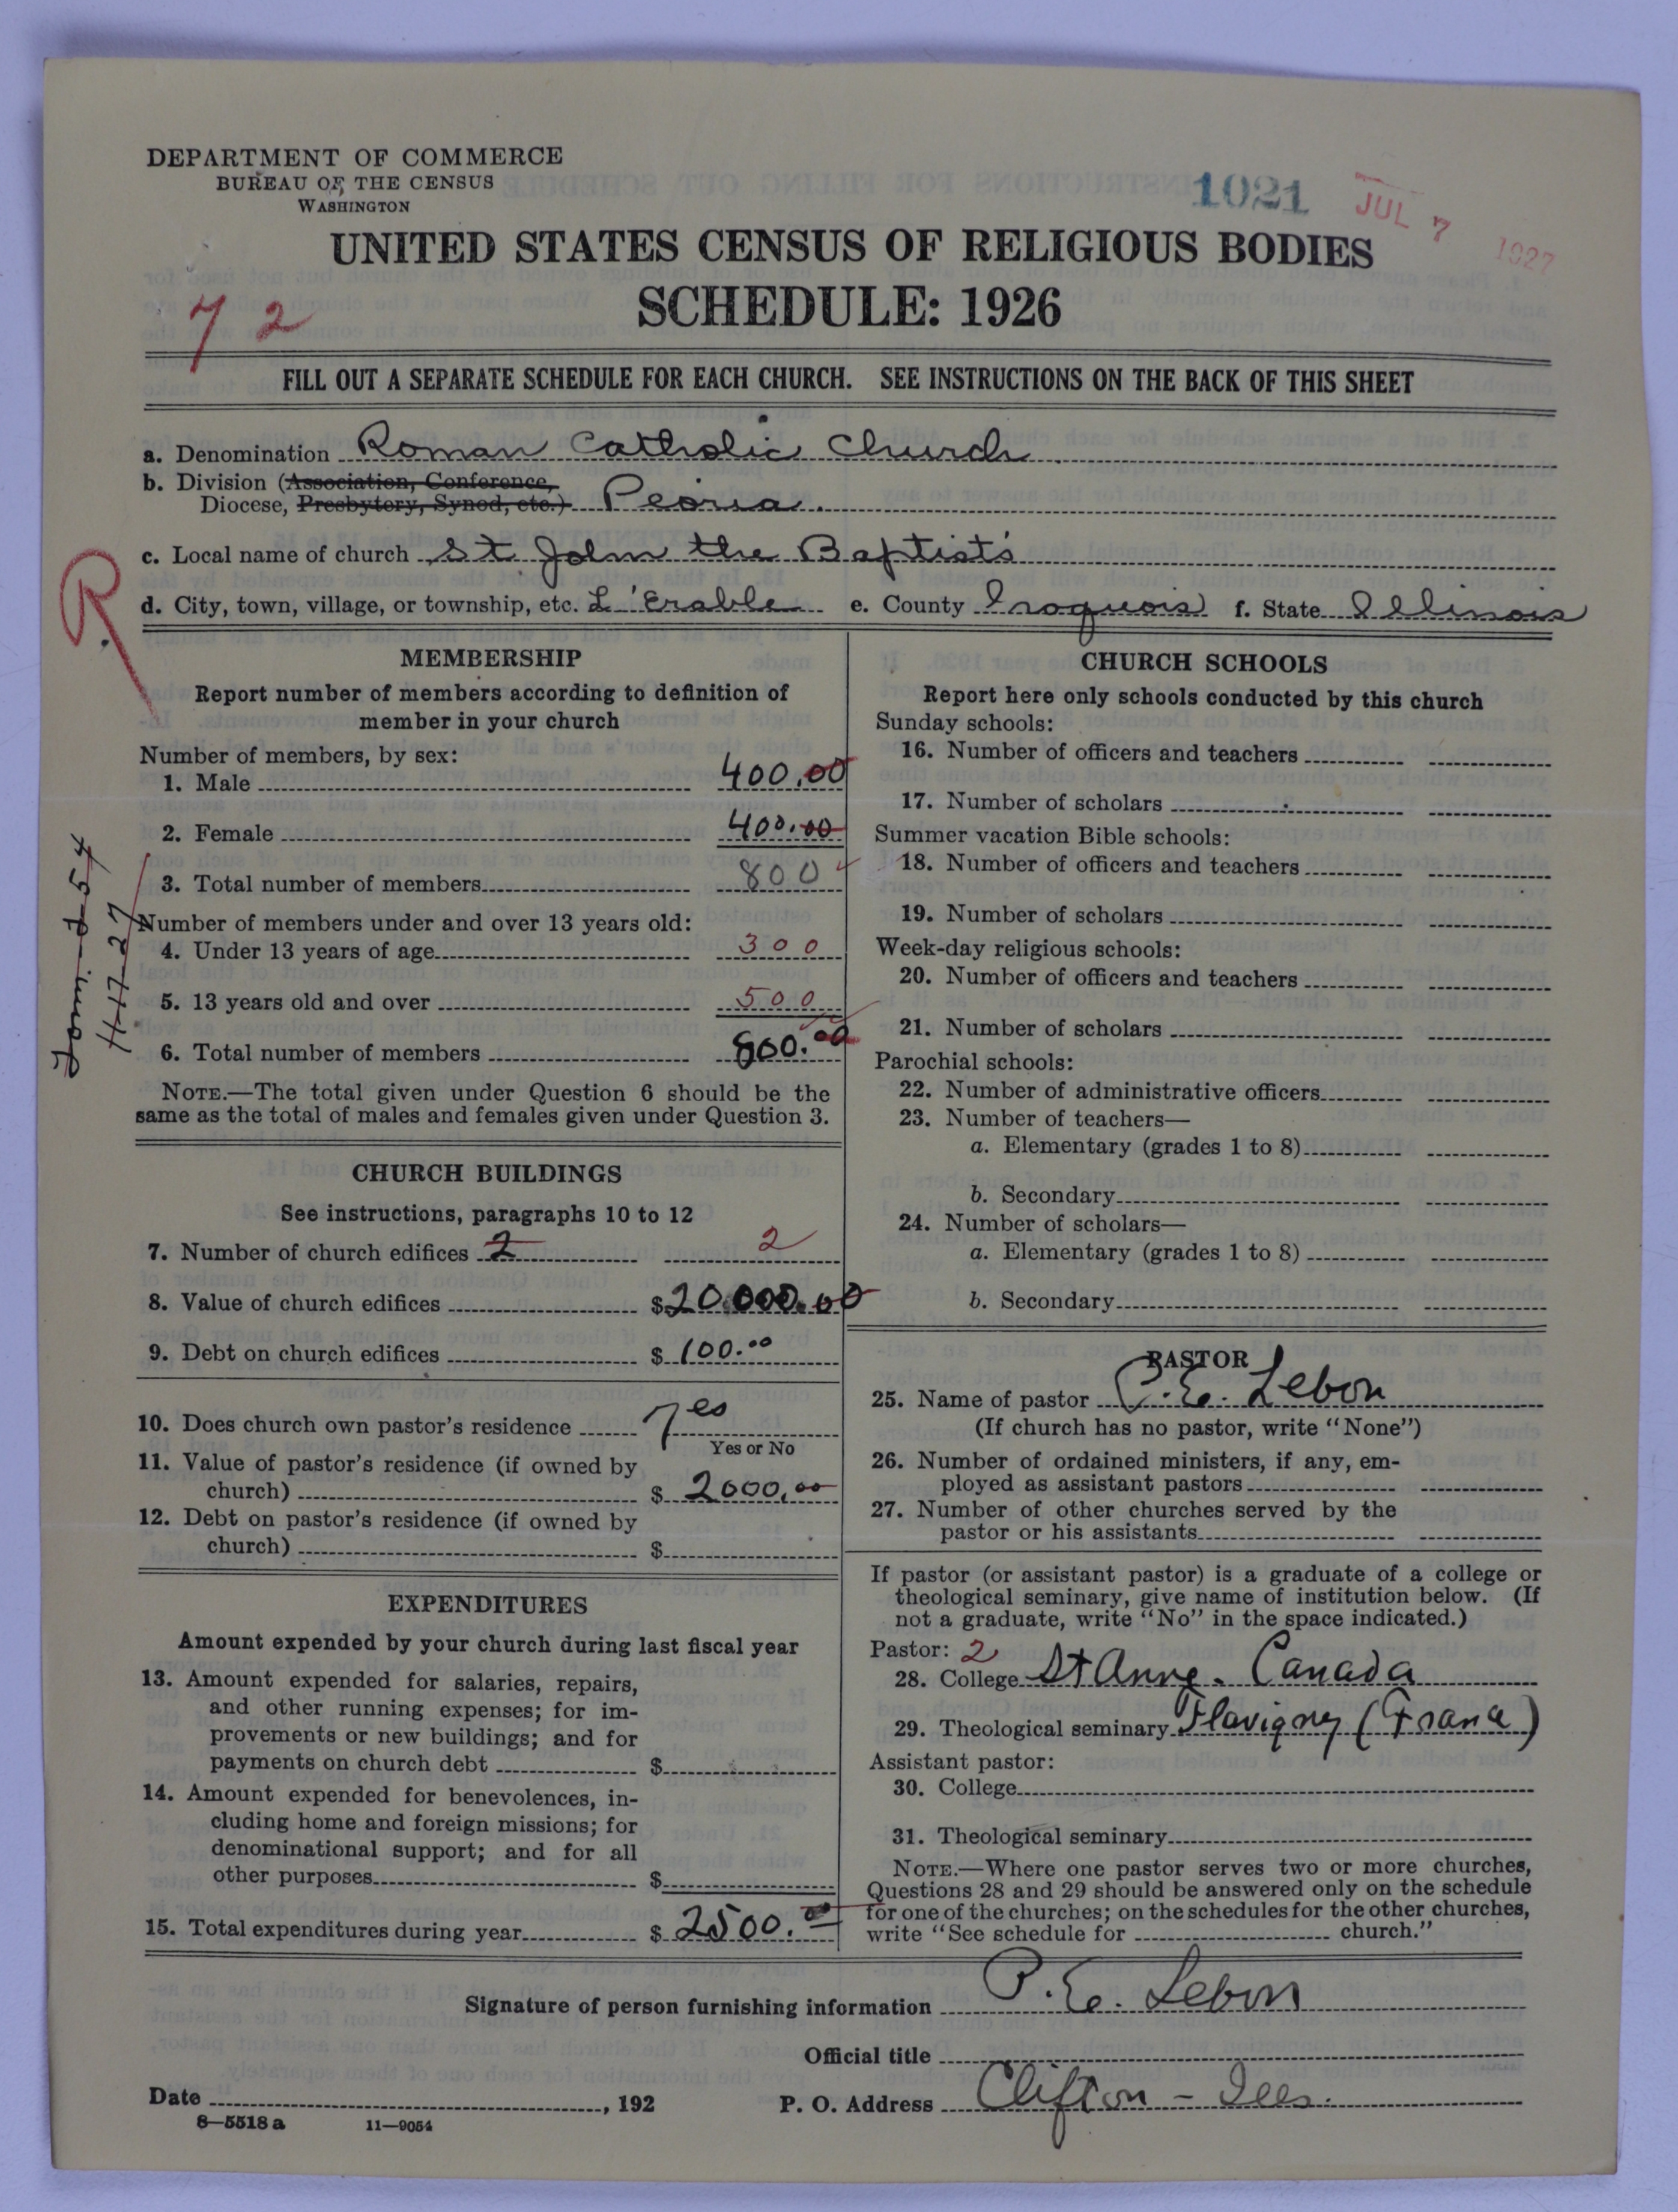 DEPARTMENT OF COMMERCE
BUREAU OF THE CENSUS
WASHINGTON
1021
JUL 7 1927
UNITED STATES CENSUS OF RELIGIOUS BODIES
SCHEDULE: 1926
72
FILL OUT A SEPARATE SCHEDULE FOR EACH CHURCH. SEE INSTRUCTIONS ON THE BACK OF THIS SHEET
a. Denomination Roman Catholic Church
b. Division (Association, Conference,
Diocese, Presbytery, Synod, etc.) Peoria.
c. Local name of church St John the Baptist's
d. City, town, village, or township, etc. L'Erable e. County Iroquois f. State Illinois
R.
MEMBERSHIP
Report number of members according to definition of
member in your church
Number of members, by sex:
1. Male 400.00
2. Female 400.00
3. Total number of members 800
Number of members under and over 13 years old:
4. Under 13 years of age 300
5. 13 years old and over 500
6. Total number of members 800.00
4-17-27
NOTE.—The total given under Question 6 should be the
same as the total of males and females given under Question 3.
CHURCH BUILDINGS
See instructions, paragraphs 10 to 12
7. Number of church edifices 2 2
8. Value of church edifices $20.000.00
9. Debt on church edifices $ 100.00
10. Does church own pastor's residence Yes
Yes or No
11. Value of pastor's residence (if owned by
church) $ 2000.00
12. Debt on pastor's residence (if owned by
church) $
EXPENDITURES
Amount expended by your church during last fiscal year
13. Amount expended for salaries, repairs,
and other running expenses; for im-
provements or new buildings; and for
payments on church debt $
14. Amount expended for benevolences, in-
cluding home and foreign missions; for
denominational support; and for all
other purposes $
15. Total expenditures during year $ 2500.00
CHURCH SCHOOLS
Report here only schools conducted by this church
Sunday schools:
16. Number of officers and teachers
17. Number of scholars
Summer vacation Bible schools:
18. Number of officers and teachers
19. Number of scholars
Week-day religious schools:
20. Number of officers and teachers
21. Number of scholars
Parochial schools:
22. Number of administrative officers
23. Number of teachers—
a. Elementary (grades 1 to 8)
b. Secondary
24. Number of scholars—
a. Elementary (grades 1 to 8)
b. Secondary
PASTOR
25. Name of pastor P. E. Lebon
(If church has no pastor, write "None")
26. Number of ordained ministers, if any, em-
ployed as assistant pastors
27. Number of other churches served by the
pastor or his assistants
If pastor (or assistant pastor) is a graduate of a college or
theological seminary, give name of institution below. (If
not a graduate, write "No" in the space indicated.)
Pastor: 2
28. College St Anne. Canada
29. Theological seminary Flavigny (France)
Assistant pastor:
30. College
31. Theological seminary
NOTE.—Where one pastor serves two or more churches,
Questions 28 and 29 should be answered only on the schedule
for one of the churches; on the schedules for the other churches,
write "See schedule for church."
Signature of person furnishing information P. E. Lebon
Official title
Date , 192 P. O. Address Clifton - Ills.
8—5518 a 11—9054